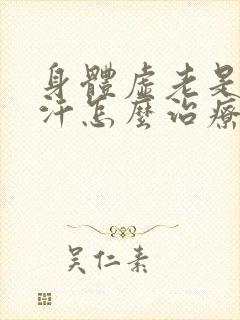 身體虛老是
汗怎麼治療
吴仁素